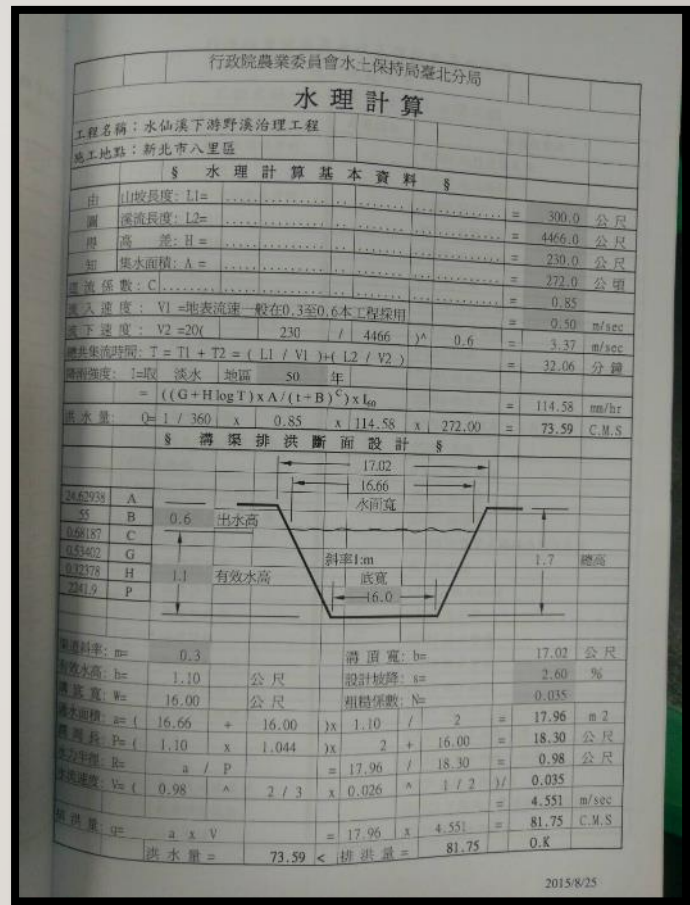 行政院農業委員會水土保持局臺北分局
水理計算
工程名稱：水仙溪下游野溪治理工程
施工地點：新北市八里區
§ 水理計算基本資料 §
由 山坡長度: L1= = 300.0 公尺
圖 溪流長度: L2= = 4466.0 公尺
得 高 差: H = = 230.0 公尺
知 集水面積: A = = 272.0 公頃
逕流係數: C = 0.85
流入速度: V1 =地表流速一般在0.3至0.6本工程採用 = 0.50 m/sec
流下速度: V2 =20( 230 / 4466 )^ 0.6 = 3.37 m/sec
總共集流時間: T = T1 + T2 = ( L1 / V1 )+( L2 / V2 ) = 32.06 分鐘
降雨強度: I=取 淡水 地區 50 年
= ((G+H log T) x A/(t+B)^C) x I60 = 114.58 mm/hr
洪水量: Q= 1 / 360 x 0.85 x 114.58 x 272.00 = 73.59 C.M.S
§ 溝渠排洪斷面設計 §
17.02
16.66
水面寬
24.62938 A
55 B 0.6 出水高
0.68187 C
0.53402 G 斜率1:m 1.7 總高
0.32378 H 1.1 有效水高 底寬
2241.9 P 16.0
渠道斜率: m= 0.3 溝頂寬: b= 17.02 公尺
有效水高: h= 1.10 公尺 設計坡降: s= 2.60 %
溝底寬: W= 16.00 公尺 粗糙係數: N= 0.035
通水面積: a= ( 16.66 + 16.00 )x 1.10 / 2 = 17.96 m 2
潤周長: P= ( 1.10 x 1.044 )x 2 + 16.00 = 18.30 公尺
水力半徑: R= a / P = 17.96 / 18.30 = 0.98 公尺
水流速度: V= ( 0.98 ^ 2 / 3 x 0.026 ^ 1 / 2 )/ 0.035
= 4.551 m/sec
排洪量: q= a x V = 17.96 x 4.551 = 81.75 C.M.S
洪水量 = 73.59 < 排洪量 = 81.75 O.K
2015/8/25